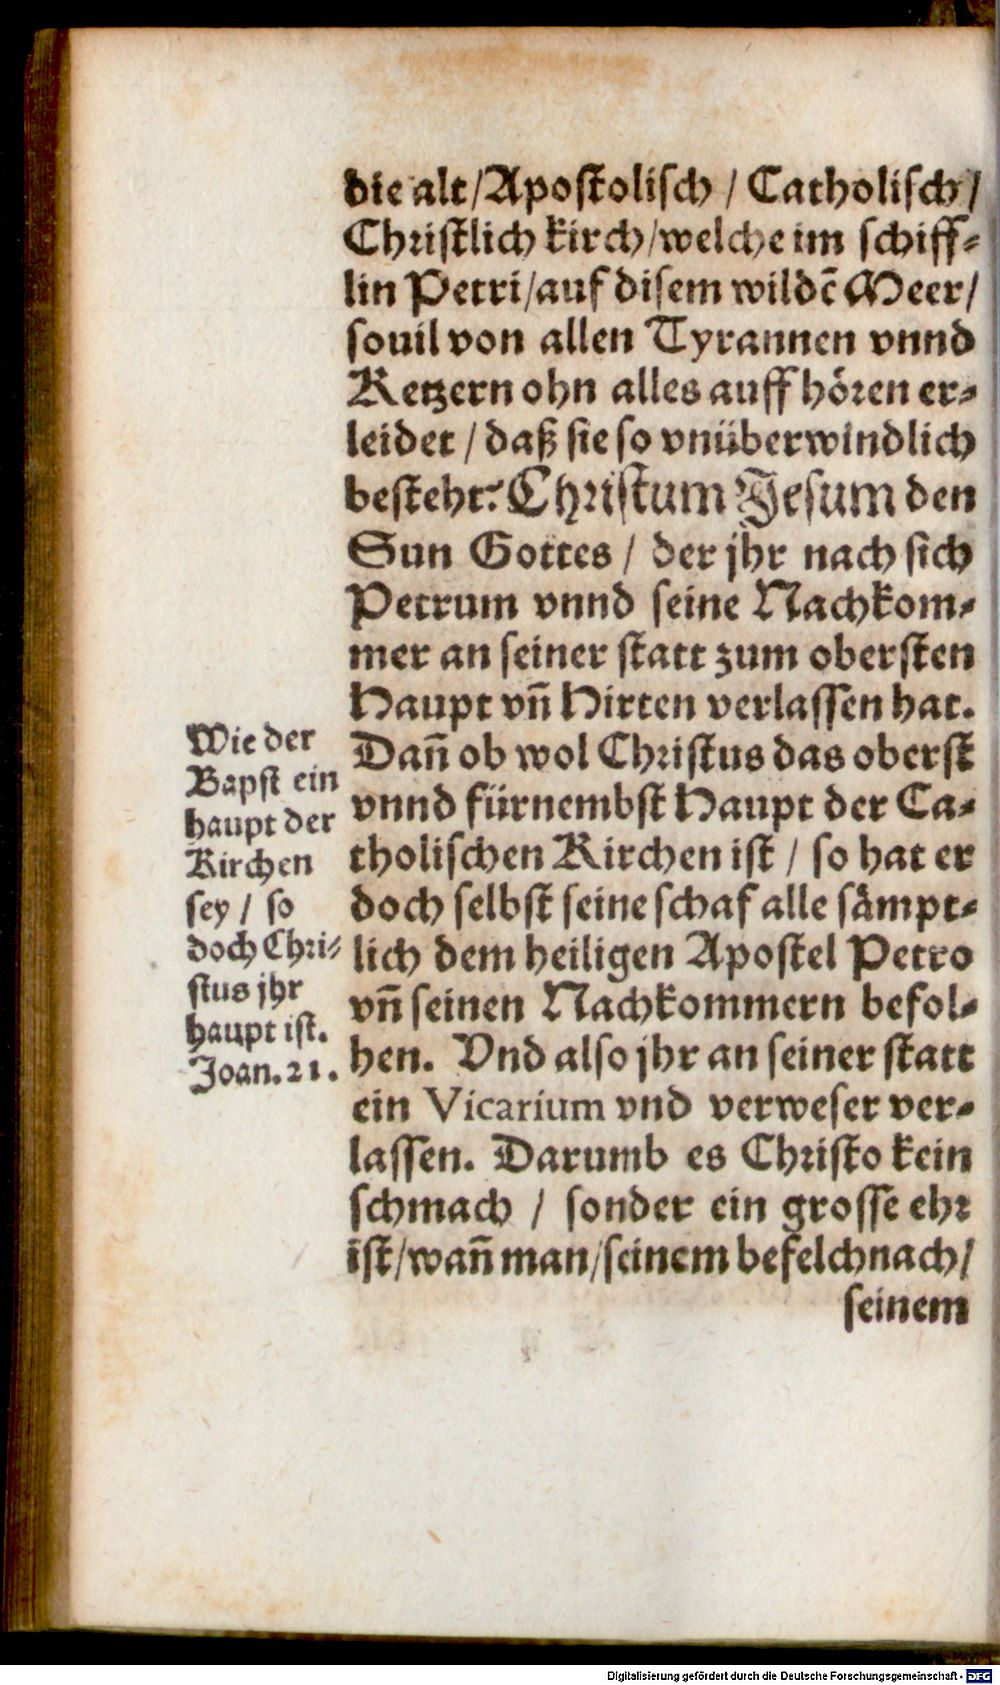 die alt/Apostolisch / Catholisch/
Christlich kirch/welche im schiff-
lin Petri/auf disem wildē Meer/
souil von allen Tyrannen vnnd
Ketzern ohn alles auff hören er-
leidet / daß sie so vnüberwindlich
besteht? Christum Jesum den
Sun Gottes / der jhr nach sich
Petrum vnnd seine Nachkom-
mer an seiner statt zum obersten
Haupt vñ Hirten verlassen hat.
Dañ ob wol Christus das oberst
vnnd fürnembst Haupt der Ca-
tholischen Kirchen ist / so hat er
doch selbst seine schaf alle sämpt-
lich dem heiligen Apostel Petro
vñ seinen Nachkommern befol-
hen. Vnd also jhr an seiner statt
ein Vicarium vnd verweser ver-
lassen. Darumb es Christo kein
schmach / sonder ein grosse ehr
ist/wañ man/seinem befelch nach/
seinem
Wie der
Bapst ein
haupt der
Kirchen
sey / so
doch Chri-
stus jhr
haupt ist.
Joan.21.
Digitalisierung gefördert durch die Deutsche Forschungsgemeinschaft - DFG